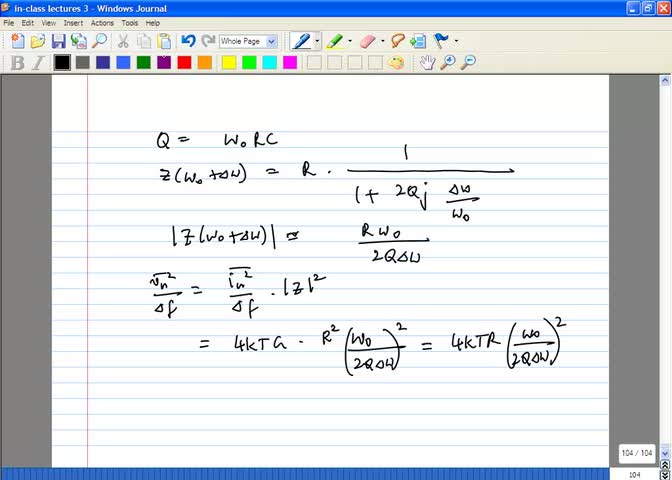 in-class lectures 3 - Windows Journal
File Edit View Insert Actions Tools Help
Whole Page
B I
Q = ω₀ RC
Z(ω₀+Δω) = R · 1 / (1 + 2Qj Δω/ω₀)
|Z(ω₀+Δω)| ≃ Rω₀ / 2QΔω
v̅ₙ²/Δf = i̅ₙ²/Δf · |Z|²
= 4kTG · R² (ω₀/2QΔω)² = 4kTR (ω₀/2QΔω)²
104 / 104
104